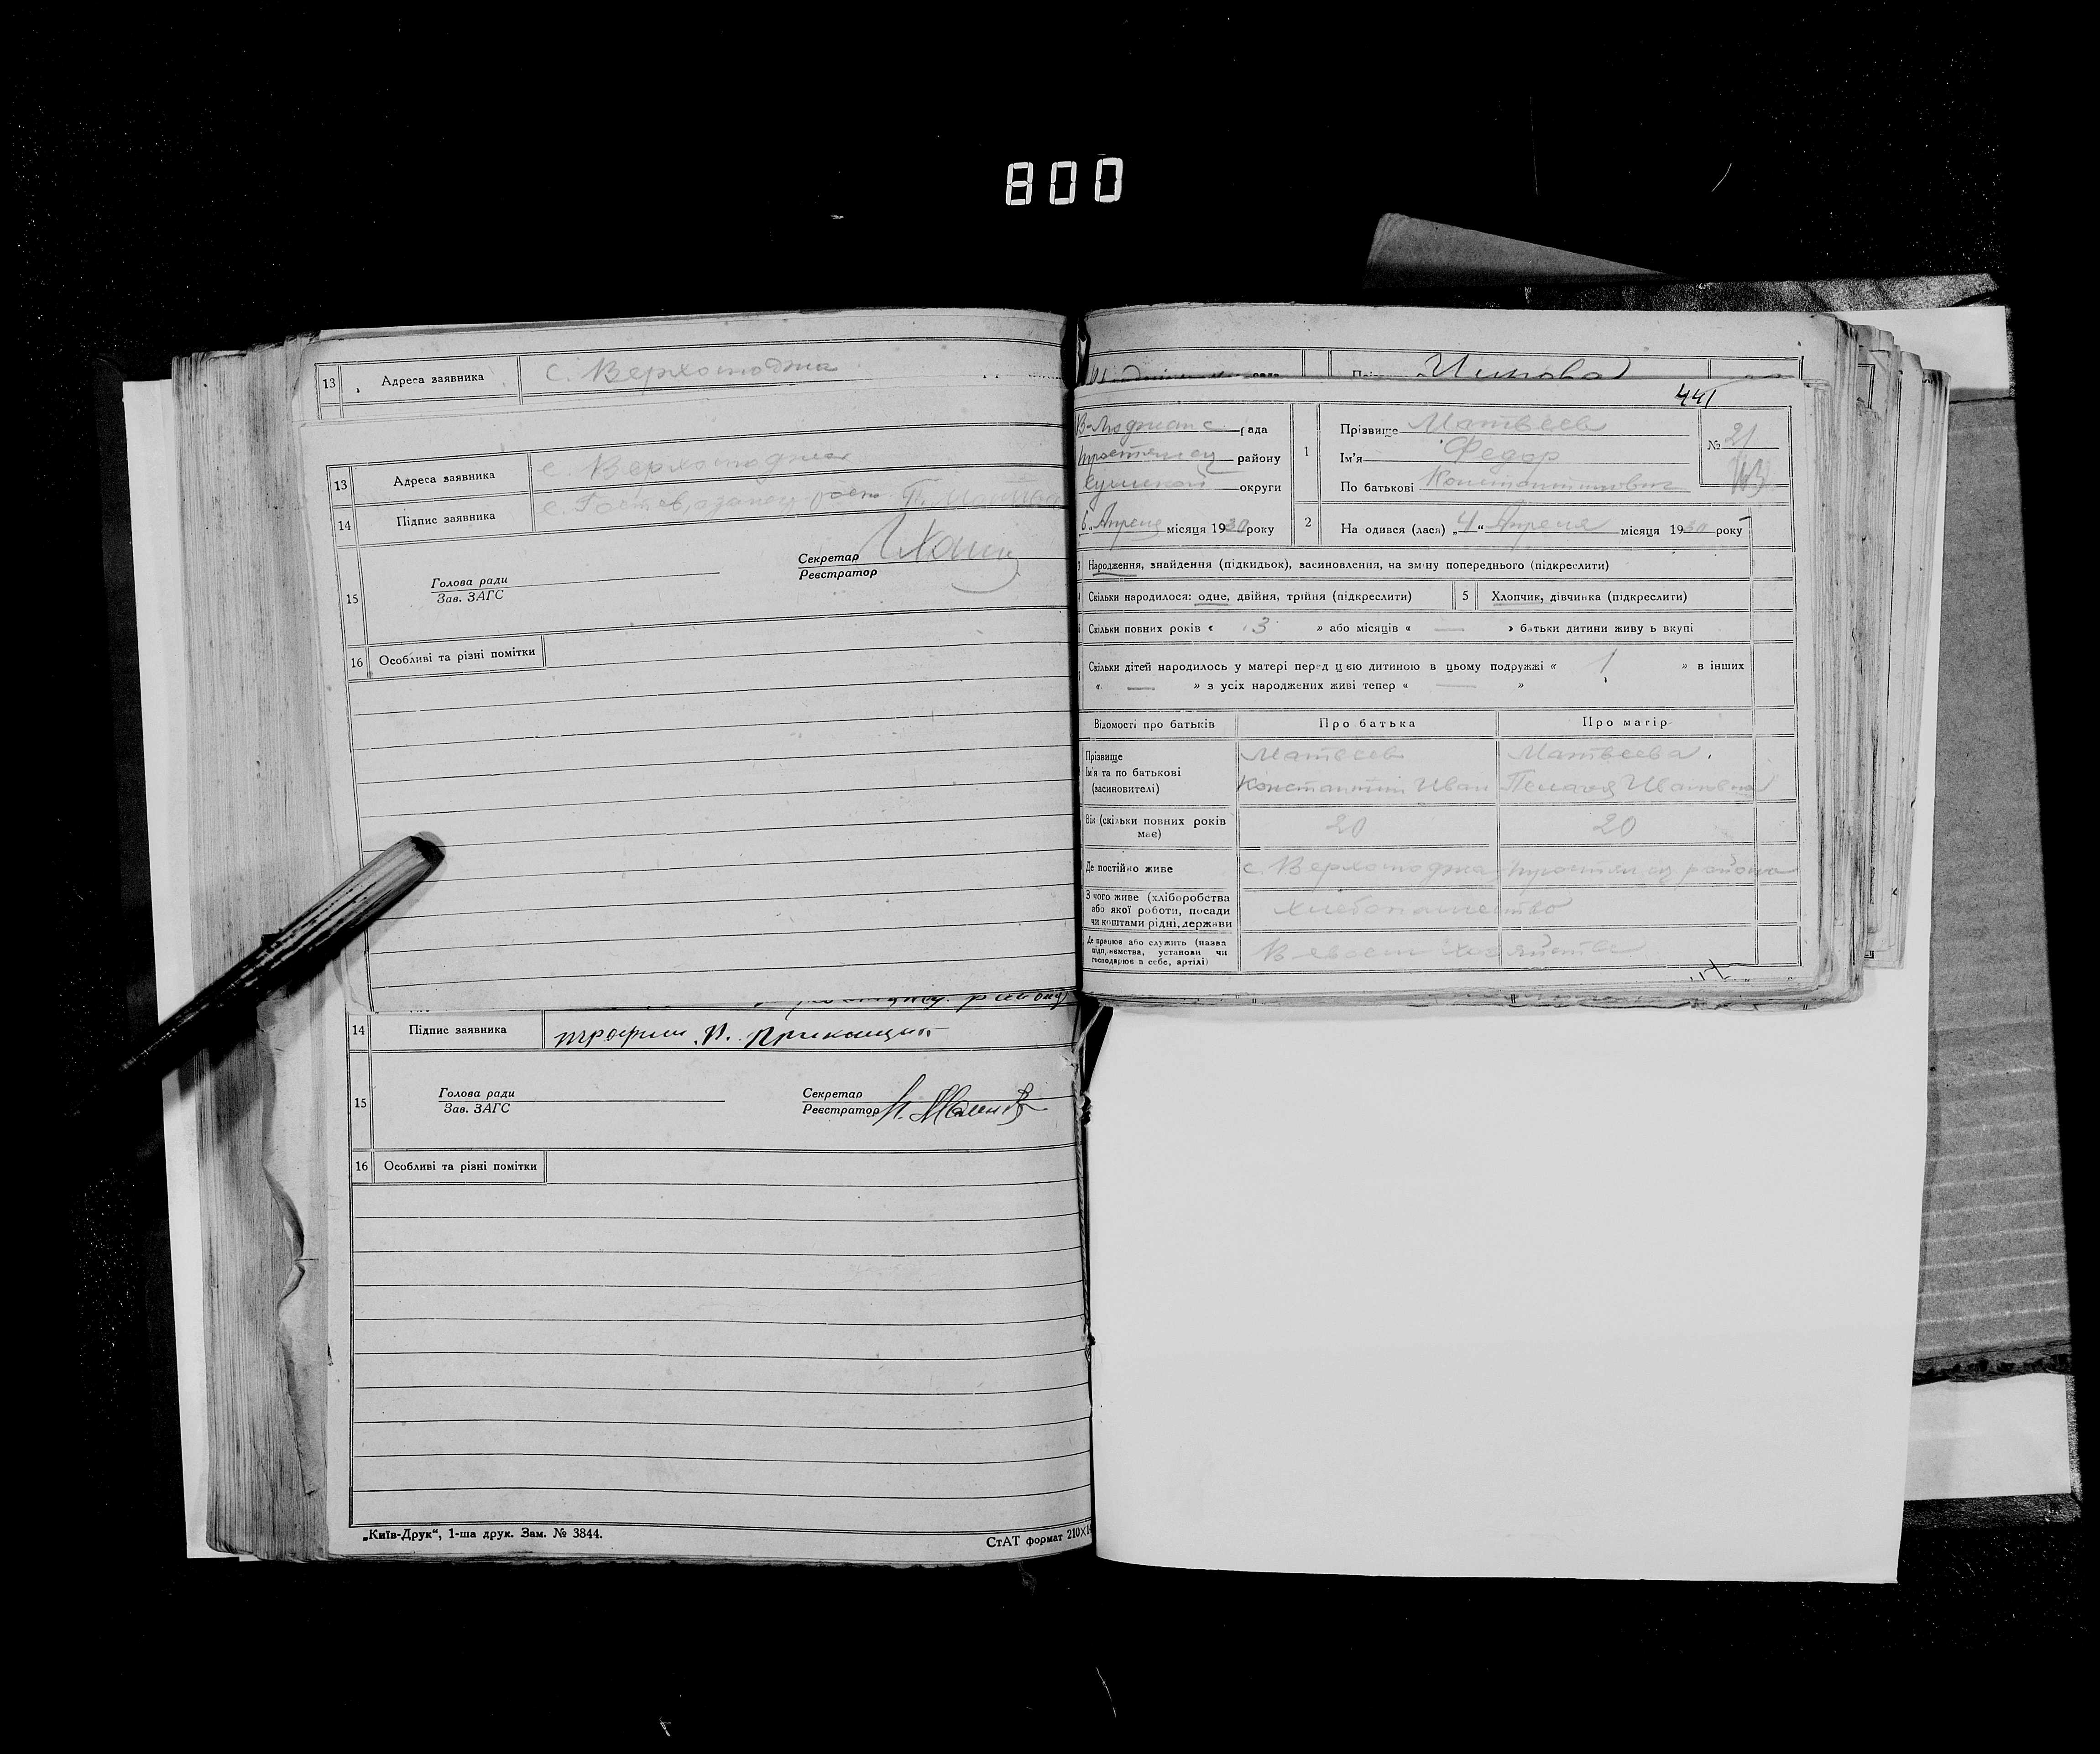 800
13 Адреса заявника с. Верхолюджа
13 Адреса заявника с. Верхолюджа
14 Підпис заявника
15 Голова ради
Зав. ЗАГС
Секретар
Реєстратор
16 Особливі та різні помітки
14 Підпис заявника
15 Голова ради
Зав. ЗАГС
Секретар
Реєстратор
16 Особливі та різні помітки
„Київ-Друк“, 1-ша друк. Зам. № 3844.
СтАТ формат 210×1
441
рада
району
округи
6 Апреля місяця 1930 року
1 Прізвище Матвеев
Ім'я Федор
По батькові Константинович
№ 21
113
2 На одився (лася) „4“ Апреля місяця 1930 року
Народження, знайдення (підкидьок), засиновлення, на зміну попереднього (підкреслити)
Скільки народилося: одне, двійня, трійня (підкреслити)
5 Хлопчик, дівчинка (підкреслити)
Скільки повних років « 3 » або місяців « — » батьки дитини живу ь вкупі
Скільки дітей народилось у матері перед цією дитиною в цьому подружжі « 1 » в інших
« — » з усіх народжених живі тепер « — »
Відомості про батьків Про батька Про матір
Прізвище Матвеев Матвеева
Ім'я та по батькові
(засиновителі) Константин Иван Пелагея Ивановна
Вік (скільки повних років
має) 20 20
Де постійно живе с. Верхолюджа района
З чого живе (хліборобства
або якої роботи, посади
чи коштами рідні, держави хлебопашество
Де працює або служить (назва
підприємства, установи чи
господарює в себе, артілі) В своем хозяйстве